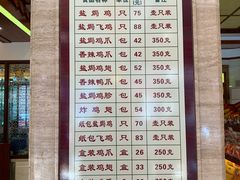 盐焗鸡 只 75 壹只装
盐焗飞鸡 只 88 壹只装
盐焗鸡爪 包 42 350克
香辣鸡爪 包 42 350克
盐焗鸡翅 包 52 350克
香辣鸭爪 包 44 350克
盐焗鸡胗 包 42 350克
炸鸡翅 包 54 300克
纸包盐焗鸡 只 73 壹只装
纸包飞鸡 只 83 壹只装
盒装鸡爪 盒 26 250克
盒装鸡翅 盒 33 250克